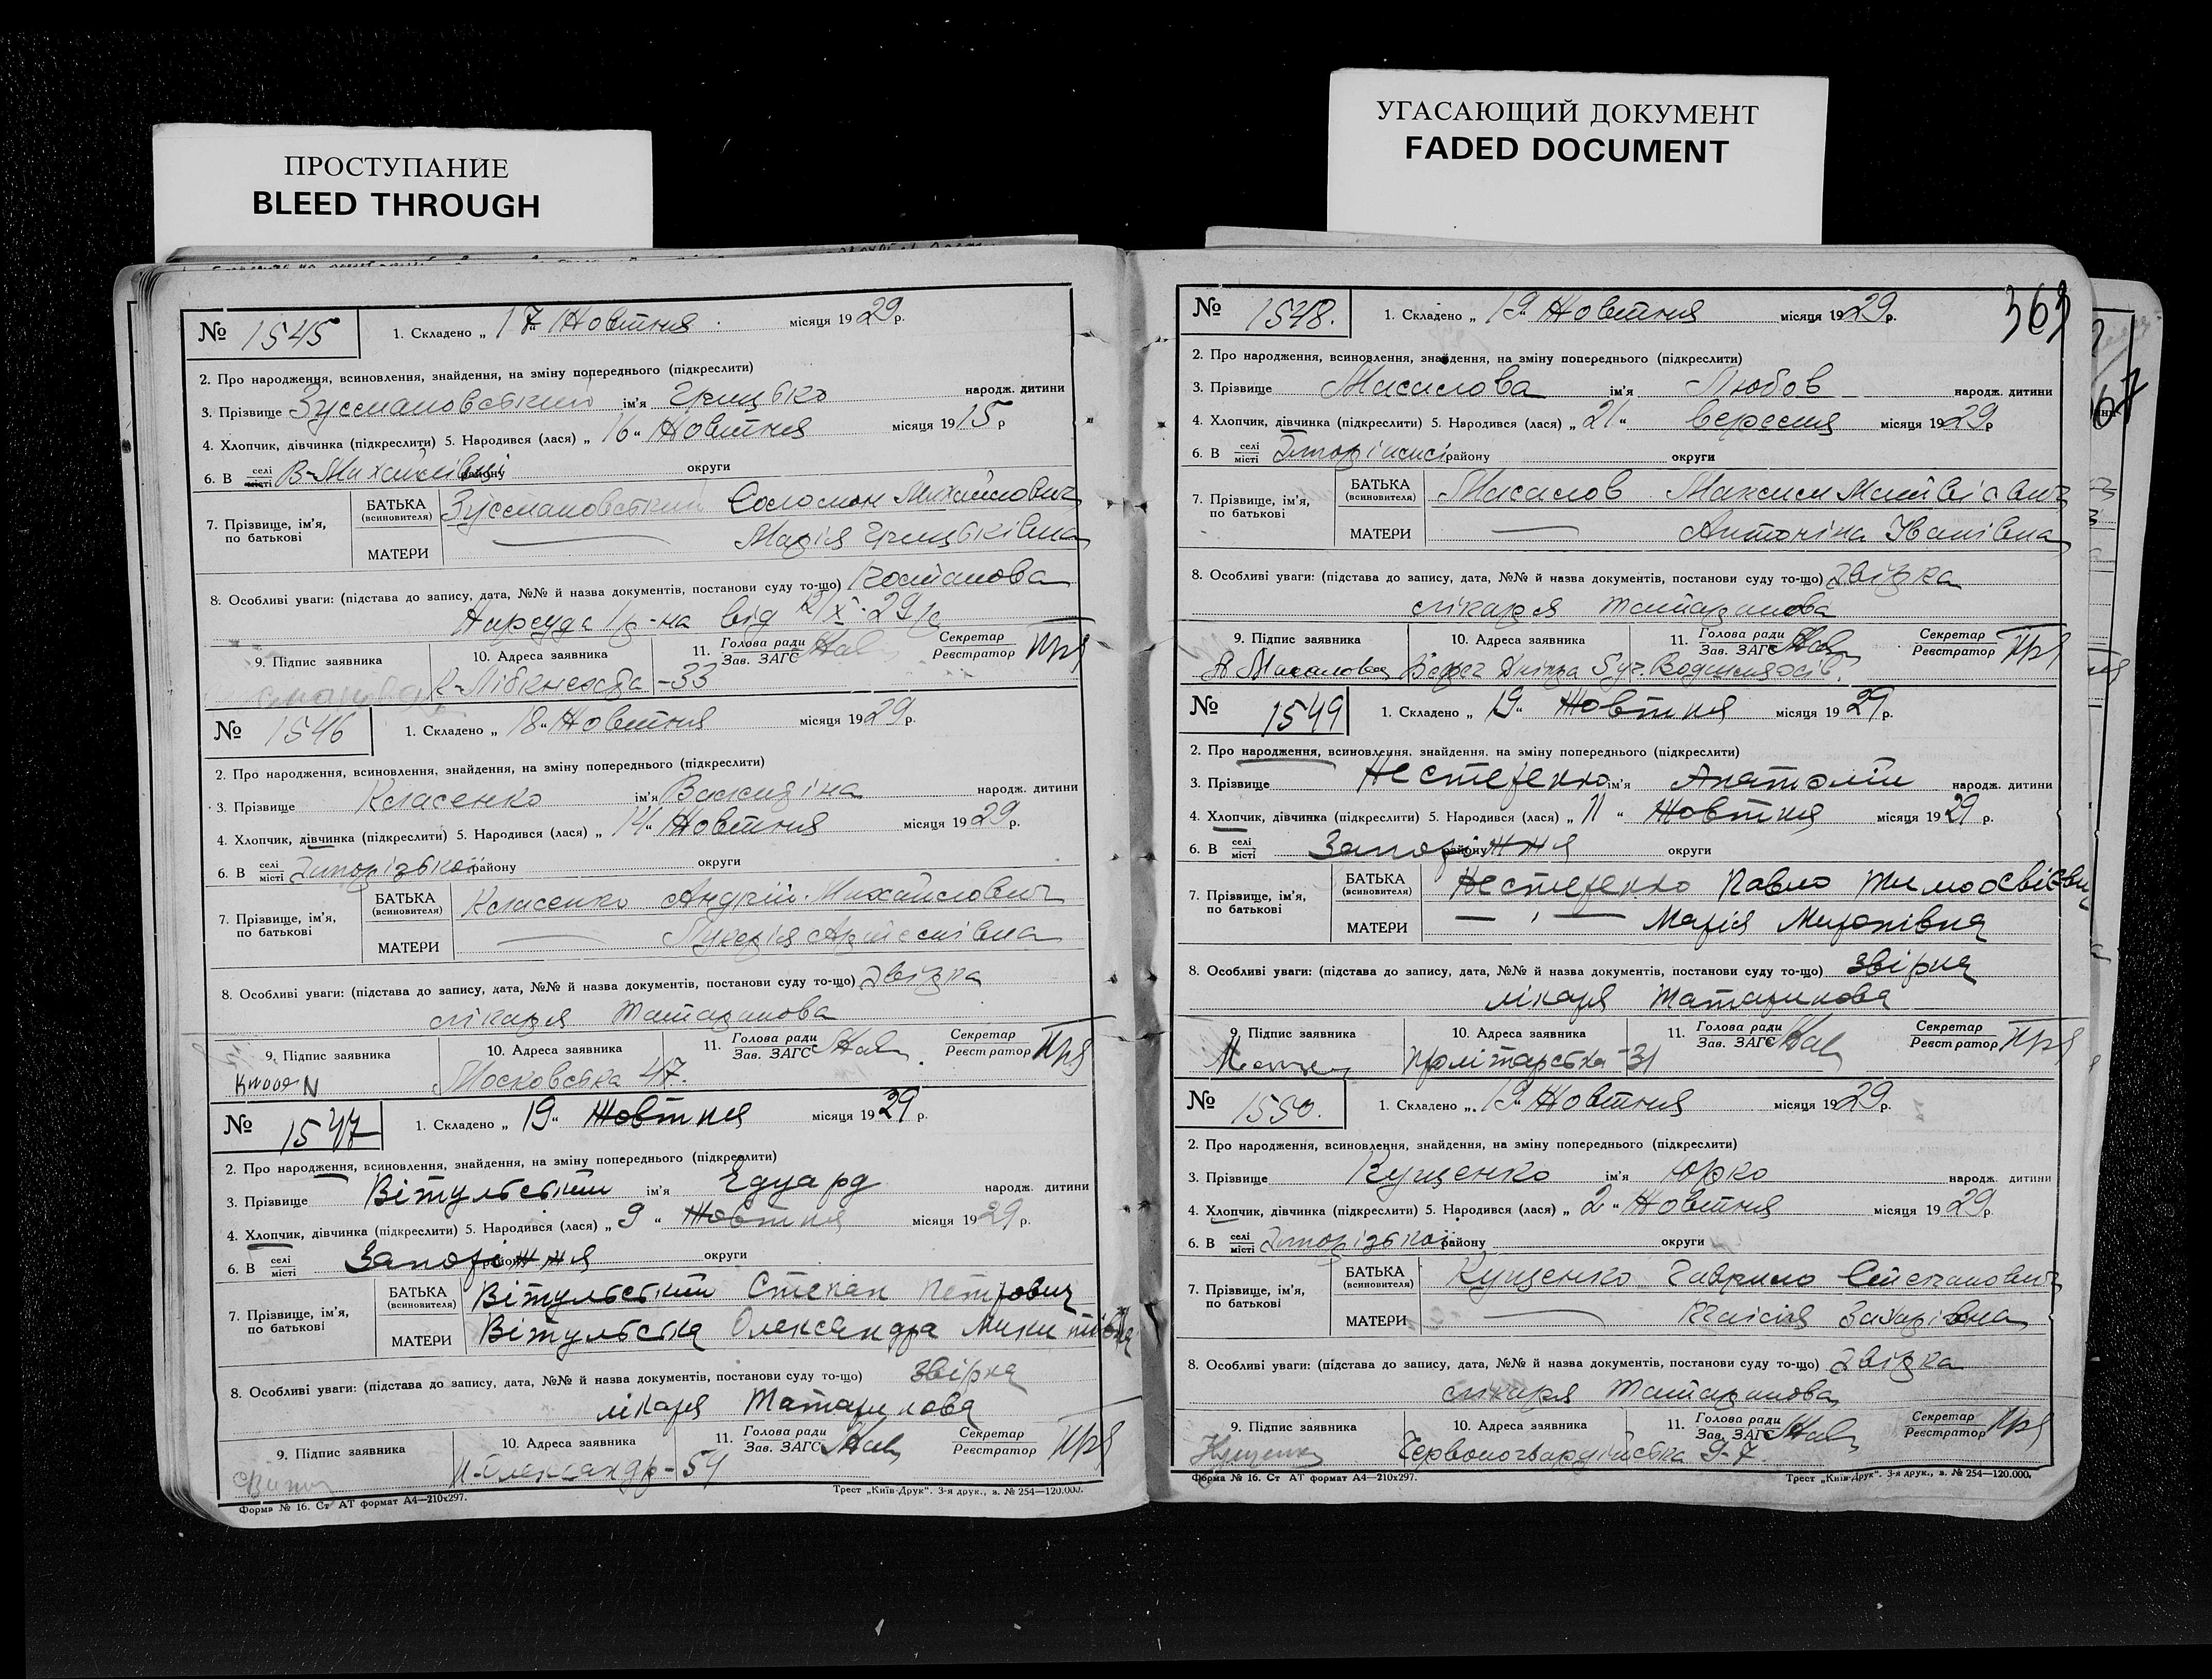 ПРОСТУПАНИЕ
BLEED THROUGH
УГАСАЮЩИЙ ДОКУМЕНТ
FADED DOCUMENT
№ 1545
1. Складено „ 17 “ Жовтня місяця 1929 р.
2. Про народження, всиновлення, знайдення, на зміну попереднього (підкреслити)
3. Прізвище Зуссмановський ім'я Грицько народж. дитини
4. Хлопчик, дівчинка (підкреслити) 5. Народився (лася) „ 16 “ Жовтня місяця 1915 р
6. В селі місті В-Михайлівці району округи
7. Прізвище, ім'я, по батькові
БАТЬКА (всиновителя) Зуссмановський Соломон Михайлович
МАТЕРИ — Марія Грицьківна
8. Особливі уваги: (підстава до запису, дата, №№ й назва документів, постанови суду то-що) Постанова
Нарсуда 1 р-на від X 29 р.
9. Підпис заявника 10. Адреса заявника 11. Голова ради Зав. ЗАГС Секретар Реєстратор
К-Лібкнехта -33
№ 1546
1. Складено „ 18 “ Жовтня місяця 1929 р.
2. Про народження, всиновлення, знайдення, на зміну попереднього (підкреслити)
3. Прізвище Власенко ім'я народж. дитини
4. Хлопчик, дівчинка (підкреслити) 5. Народився (лася) „ 14 “ Жовтня місяця 1929 р.
6. В селі місті району округи
7. Прізвище, ім'я, по батькові
БАТЬКА (всиновителя) Власенко Андрій Михайлович
МАТЕРИ — Лукерія Артемівна
8. Особливі уваги: (підстава до запису, дата, №№ й назва документів, постанови суду то-що) Звірка
лікаря Татаринова
9. Підпис заявника 10. Адреса заявника 11. Голова ради Зав. ЗАГС Секретар Реєстратор
Московська 47.
№ 1547
1. Складено „ 19 “ Жовтня місяця 1929 р.
2. Про народження, всиновлення, знайдення, на зміну попереднього (підкреслити)
3. Прізвище Вітульський ім'я Едуард народж. дитини
4. Хлопчик, дівчинка (підкреслити) 5. Народився (лася) „ 9 “ Жовтня місяця 1929 р.
6. В селі місті Запоріжжя району округи
7. Прізвище, ім'я, по батькові
БАТЬКА (всиновителя) Вітульський Степан Петрович
МАТЕРИ Вітульська Олександра Микитівна
8. Особливі уваги: (підстава до запису, дата, №№ й назва документів, постанови суду то-що) звірка
лікаря Татаринова
9. Підпис заявника 10. Адреса заявника 11. Голова ради Зав. ЗАГС Секретар Реєстратор
Н-Олександр-54
Форма № 16. Ст АТ формат А4—210х297. Трест „Київ-Друк“. 3-я друк., з. № 254—120.000.
363
№ 1548.
1. Складено „ 19 “ Жовтня місяця 1929 р.
2. Про народження, всиновлення, знайдення, на зміну попереднього (підкреслити)
3. Прізвище Масалова ім'я Любов народж. дитини
4. Хлопчик, дівчинка (підкреслити) 5. Народився (лася) „ 21 “ вересня місяця 1929 р
6. В селі місті району округи
7. Прізвище, ім'я, по батькові
БАТЬКА (всиновителя) Масалов Максим Матвієвич
МАТЕРИ — Антоніна Іванівна
8. Особливі уваги: (підстава до запису, дата, №№ й назва документів, постанови суду то-що) Звірка
лікаря Татаринова
9. Підпис заявника 10. Адреса заявника 11. Голова ради Зав. ЗАГС Секретар Реєстратор
А Масалова Берег Дніпра
№ 1549
1. Складено „ 19 “ Жовтня місяця 1929 р.
2. Про народження, всиновлення, знайдення, на зміну попереднього (підкреслити)
3. Прізвище Нестеренко ім'я Анатолій народж. дитини
4. Хлопчик, дівчинка (підкреслити) 5. Народився (лася) „ 11 “ Жовтня місяця 1929 р.
6. В селі місті Запоріжжя району округи
7. Прізвище, ім'я, по батькові
БАТЬКА (всиновителя) Нестеренко Павло Тимофієвич
МАТЕРИ — „ — Марія Миронівна
8. Особливі уваги: (підстава до запису, дата, №№ й назва документів, постанови суду то-що) звірка
лікаря Татаринова
9. Підпис заявника 10. Адреса заявника 11. Голова ради Зав. ЗАГС Секретар Реєстратор
Пролітарська -31
№ 1550.
1. Складено „ 19 “ Жовтня місяця 1929 р.
2. Про народження, всиновлення, знайдення, на зміну попереднього (підкреслити)
3. Прізвище Кущенко ім'я Юрко народж. дитини
4. Хлопчик, дівчинка (підкреслити) 5. Народився (лася) „ 2 “ Жовтня місяця 1929 р.
6. В селі місті району округи
7. Прізвище, ім'я, по батькові
БАТЬКА (всиновителя) Кущенко Гаврило Степанович
МАТЕРИ — Таїсія Захарівна
8. Особливі уваги: (підстава до запису, дата, №№ й назва документів, постанови суду то-що) Звірка
лікаря Татаринова
9. Підпис заявника 10. Адреса заявника 11. Голова ради Зав. ЗАГС Секретар Реєстратор
Кущенко Червоногвардійська 9-7.
Форма № 16. Ст АТ формат А4—210х297. Трест „Київ-Друк“. 3-я друк., з. № 254—120.000.